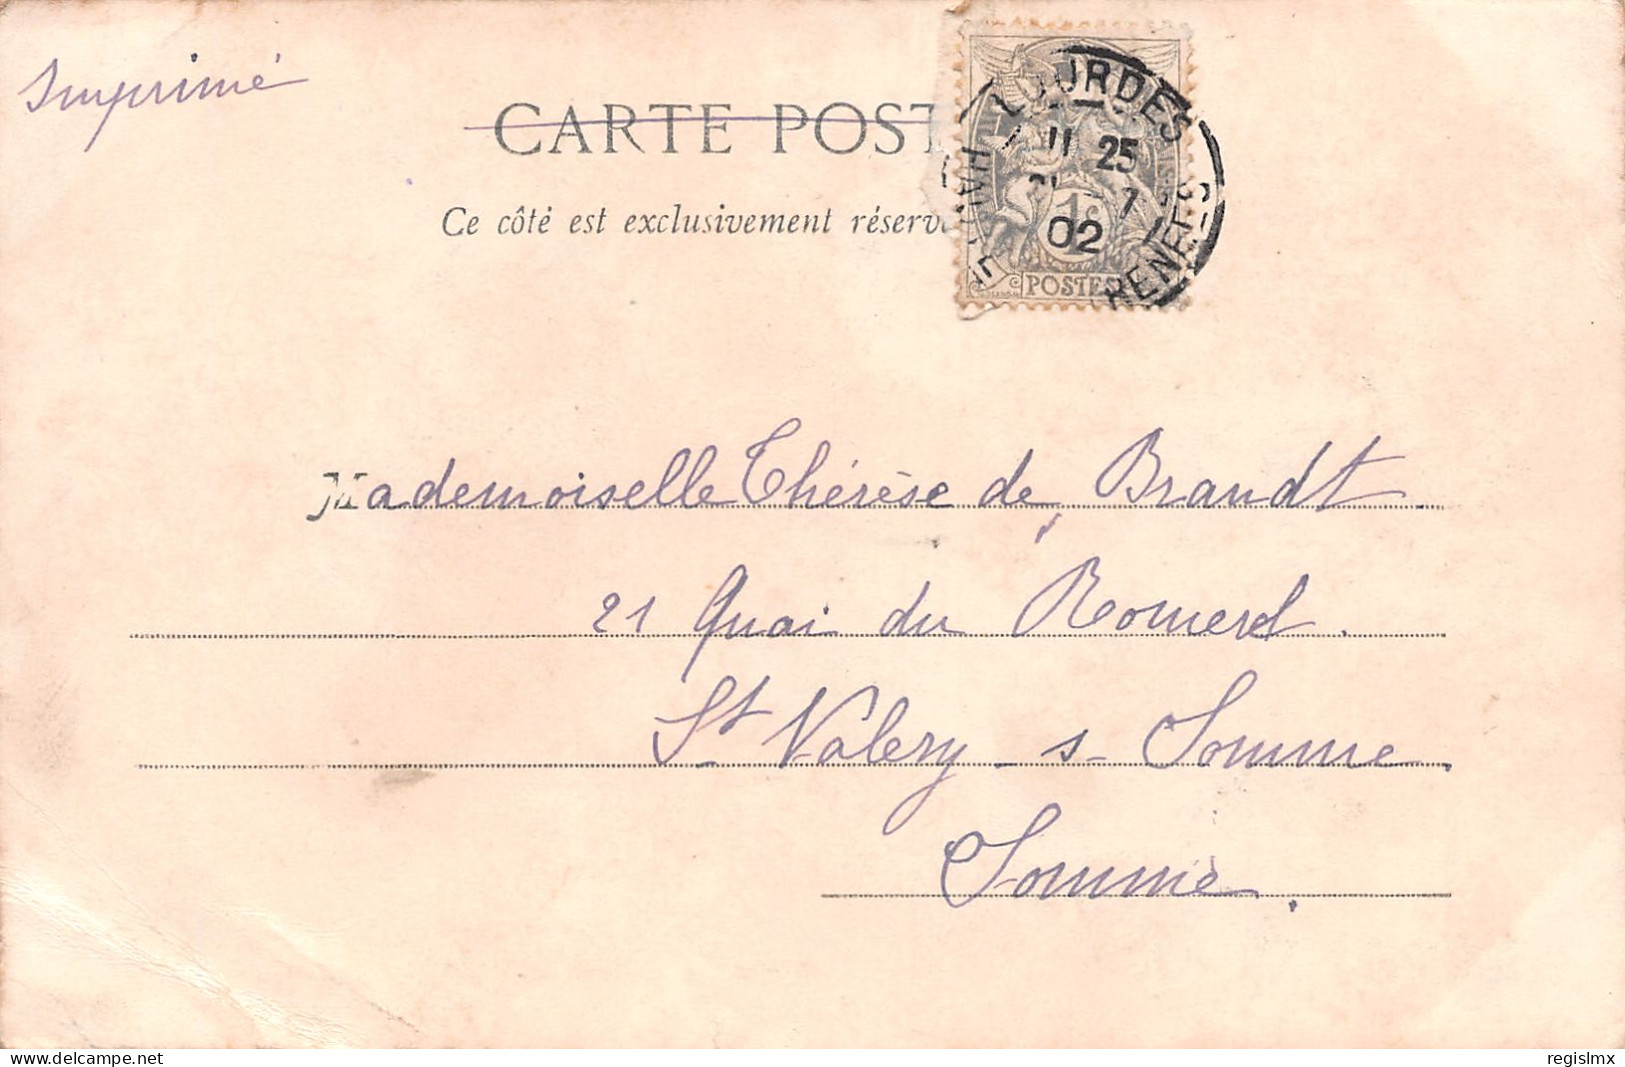 Imprimé
CARTE POST
Ce côté est exclusivement réserv
LOURDES
11 25
7
02
1c
POSTES
Mademoiselle Thérèse de Brandt
21 Quai du Romerel.
St Valery - s - Somme.
Somme.
regislmx